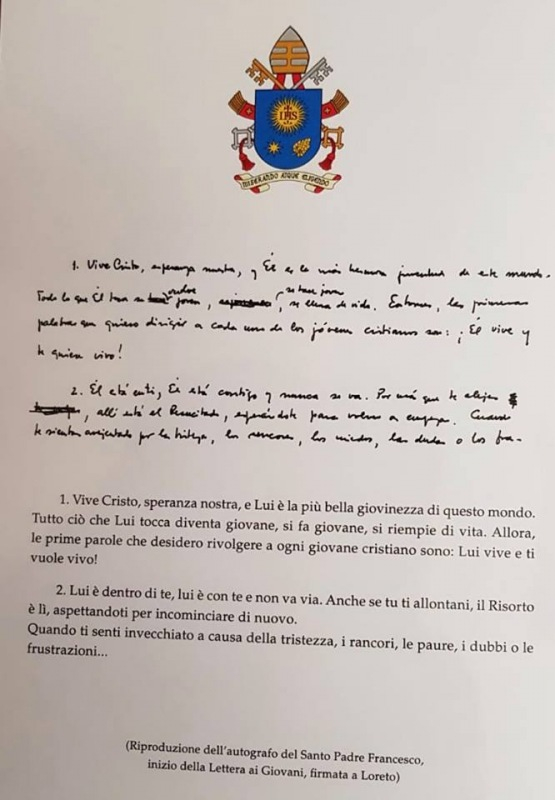 IHS
MISERANDO ATQUE ELIGENDO
1. Vive Cristo, esperanza nuestra, y Él es la más hermosa juventud de este mundo.
Todo lo que Él toca se vuelve joven, se hace joven, se llena de vida. Entonces, las primeras
palabras que quiero dirigir a cada uno de los jóvenes cristianos son: ¡Él vive y
te quiere vivo!
2. Él está en ti, Él está contigo y nunca se va. Por más que te alejes
, allí está el Resucitado, esperándote para volver a empezar. Cuando
te sientas avejentado por la tristeza, los rencores, los miedos, las dudas o los fra-
1. Vive Cristo, speranza nostra, e Lui è la più bella giovinezza di questo mondo.
Tutto ciò che Lui tocca diventa giovane, si fa giovane, si riempie di vita. Allora,
le prime parole che desidero rivolgere a ogni giovane cristiano sono: Lui vive e ti
vuole vivo!
2. Lui è dentro di te, lui è con te e non va via. Anche se tu ti allontani, il Risorto
è lì, aspettandoti per incominciare di nuovo.
Quando ti senti invecchiato a causa della tristezza, i rancori, le paure, i dubbi o le
frustrazioni...
(Riproduzione dell'autografo del Santo Padre Francesco,
inizio della Lettera ai Giovani, firmata a Loreto)